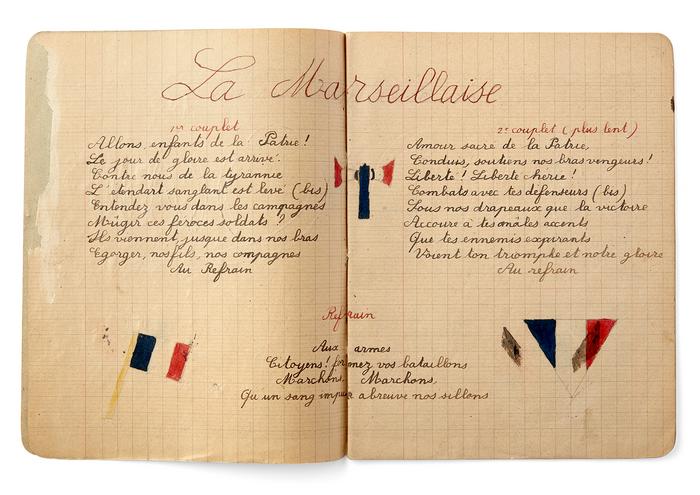 La Marseillaise
1er couplet
Allons, enfants de la Patrie!
Le jour de gloire est arrivé.
Contre nous de la tyrannie
L'étendart sanglant est levé (bis)
Entendez vous dans les campagnes
Mugir ces féroces soldats?
Ils viennent, jusque dans nos bras
Egorger, nos fils, nos compagnes
Au Refrain
2e couplet (plus lent)
Amour sacré de la Patrie,
Conduis, soutiens nos bras vengeurs!
Liberté! Liberté chérie!
Combats avec tes défenseurs (bis)
Sous nos drapeaux que la victoire
Accoure à tes mâles accents
Que tes ennemis expirants
Voient ton triomphe et notre gloire
Au refrain
Refrain
Aux armes
Citoyens! formez vos bataillons
Marchons, Marchons,
Qu'un sang impur abreuve nos sillons